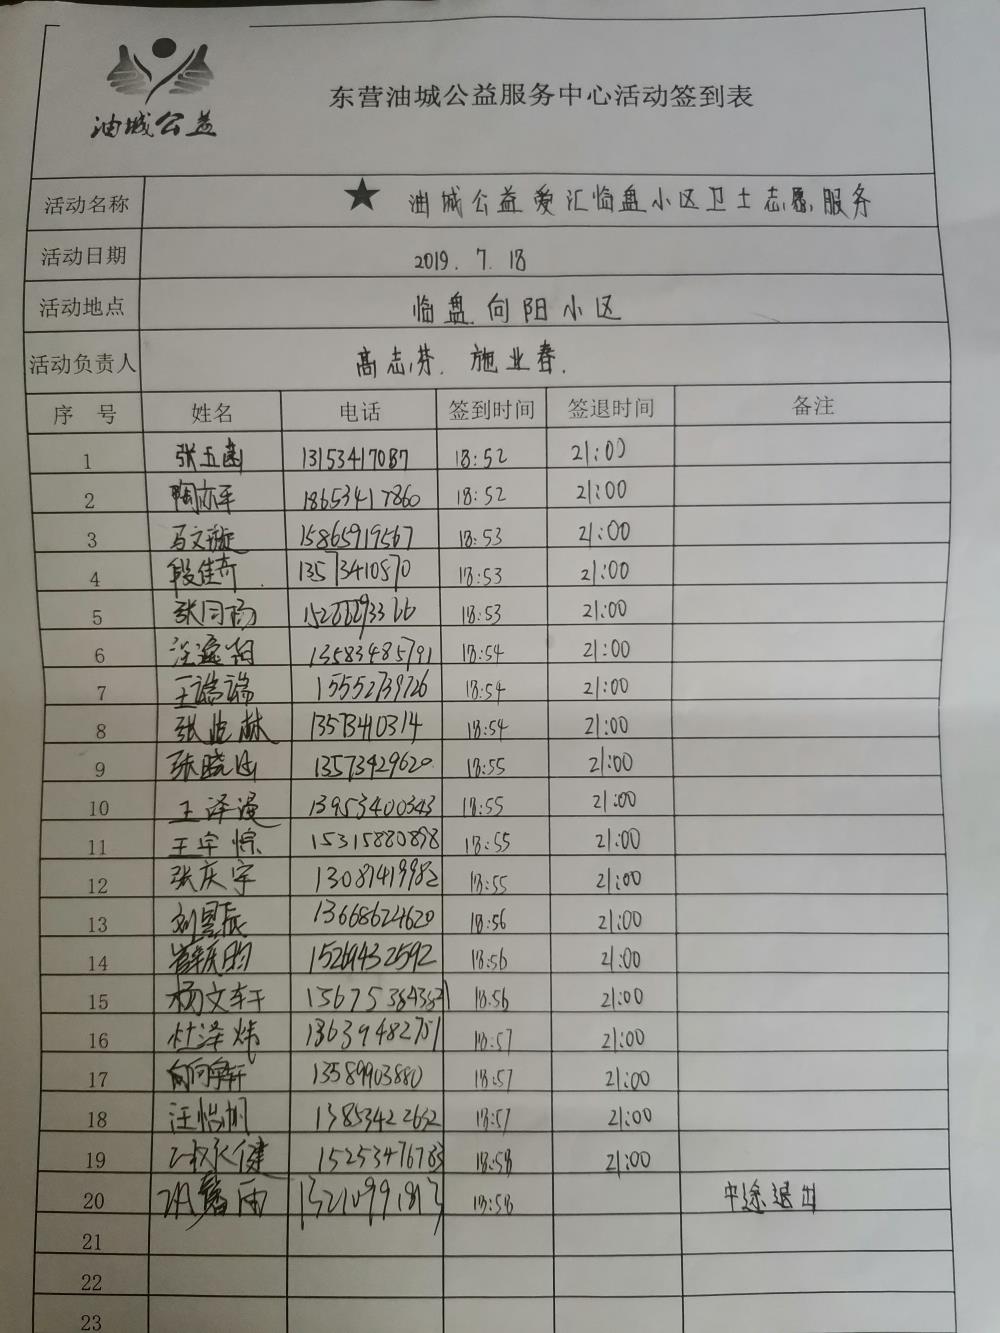 油城公益
东营油城公益服务中心活动签到表
活动名称 ★ 油城公益爱汇临盘小区卫士志愿服务
活动日期 2019.7.18
活动地点 临盘向阳小区
活动负责人 高志芬. 施业春.
序 号 姓名 电话 签到时间 签退时间 备注
1 张玉菡 13153417087 18:52 21:00
2 陶亦军 18653417860 18:52 21:00
3 马文璇 15865919567 18:53 21:00
4 段佳奇 13573410870 18:53 21:00
5 18:53 21:00
6 13583485791 18:54 21:00
7 王瑞瑞 15552739726 18:54 21:00
8 13573410314 18:54 21:00
9 13573429620 18:55 21:00
10 王泽漫 13953400343 18:55 21:00
11 王宇 15315880898 18:55 21:00
12 张庆宇 13081419982 18:55 21:00
13 刘昱辰 13668624620 18:56 21:00
14 15269432592 18:56 21:00
15 杨文轩 18:56 21:00
16 杜泽炜 13639482751 18:57 21:00
17 13589903880 18:57 21:00
18 汪怡帆 18:57 21:00
19 15253476783 18:58 21:00
20 18:58 中途退出
21
22
23